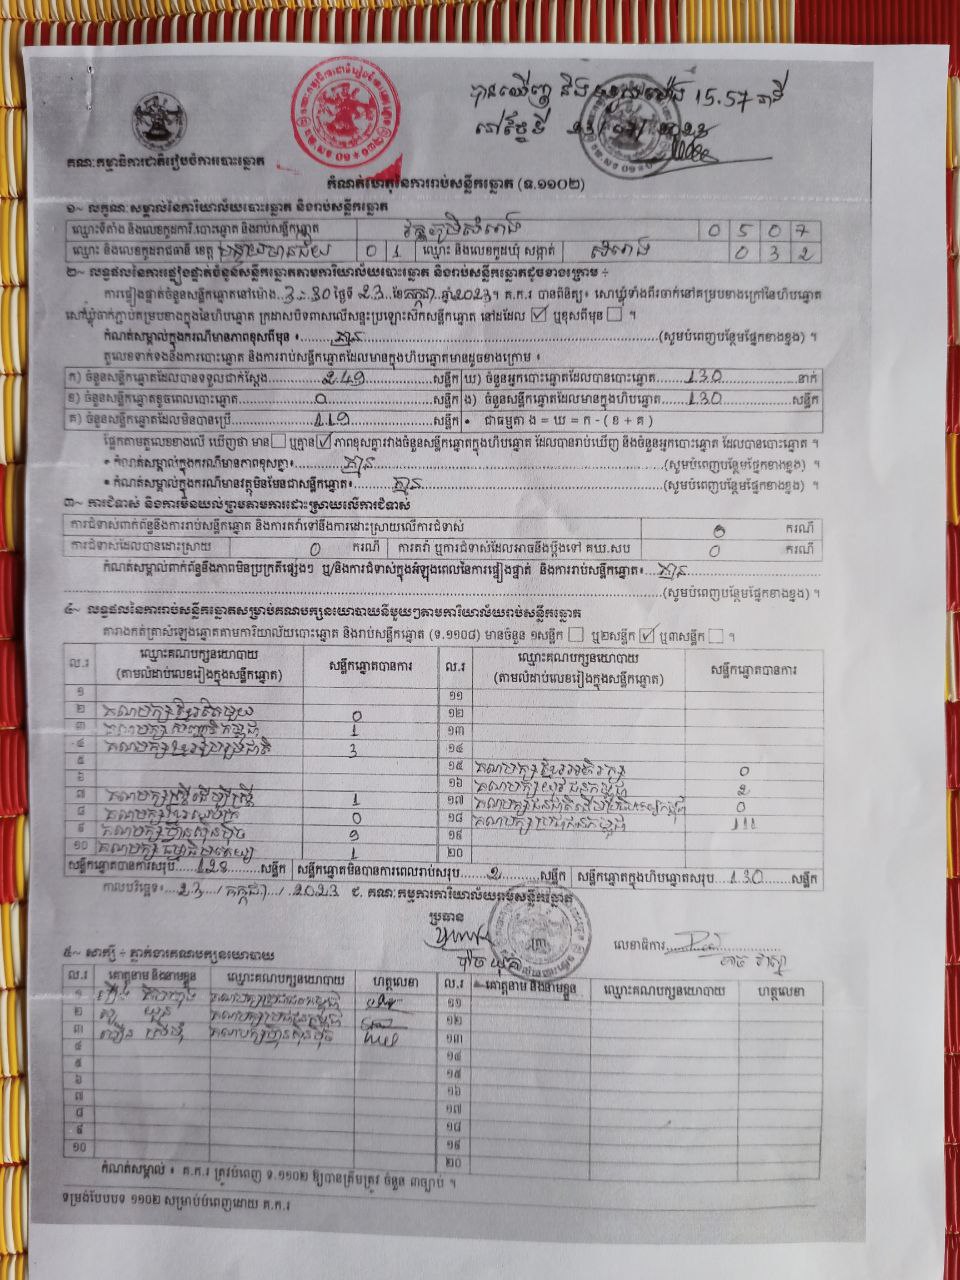 បានឃើញ និង
15.57 នាទី
នៅថ្ងៃទី 23/07/2023
គណៈកម្មាធិការជាតិរៀបចំការបោះឆ្នោត
កំណត់ហេតុនៃការរាប់សន្លឹកឆ្នោត (ទ.១១០២)
១~ លក្ខណៈសម្គាល់នៃការិយាល័យបោះឆ្នោត និងរាប់សន្លឹកឆ្នោត
ឈ្មោះទីតាំង និងលេខកូដការិ.បោះឆ្នោត និងរាប់សន្លឹកឆ្នោត វត្តភូមិសំរោង 0 5 0 7
ឈ្មោះ និងលេខកូដរាជធានី ខេត្ត បន្ទាយមានជ័យ 0 1 ឈ្មោះ និងលេខកូដឃុំ សង្កាត់ សំរោង 0 3 2
២~ លទ្ធផលនៃការផ្ទៀងផ្ទាត់ចំនួនសន្លឹកឆ្នោតតាមការិយាល័យបោះឆ្នោត និងរាប់សន្លឹកឆ្នោតដូចខាងក្រោម ÷
ការផ្ទៀងផ្ទាត់ចំនួនសន្លឹកឆ្នោតនៅម៉ោង 3:30 ថ្ងៃទី 23 ខែកក្កដា ឆ្នាំ2023។ គ.ក.រ បានពិនិត្យ៖ សោឃ្លុំទាំងពីរចាក់នៅគម្របខាងក្រៅនៃហិបឆ្នោត
សោឃ្លុំចាក់ភ្ជាប់គម្របខាងក្នុងនៃហិបឆ្នោត ក្រដាសបិទពាសលើសន្ទះប្រឡោះសឹកសន្លឹកឆ្នោត នៅដដែល ☑ ឬខុសពីមុន ☐ ។
កំណត់សម្គាល់ក្នុងករណីមានភាពខុសពីមុន ៖ គ្មាន (សូមបំពេញបន្ថែមផ្នែកខាងខ្នង) ។
តួលេខទាក់ទងនឹងការបោះឆ្នោត និងការរាប់សន្លឹកឆ្នោតដែលមានក្នុងហិបឆ្នោតមានដូចខាងក្រោម ៖
ក) ចំនួនសន្លឹកឆ្នោតដែលបានទទួលជាក់ស្តែង 249 សន្លឹក ឃ) ចំនួនអ្នកបោះឆ្នោតដែលបានបោះឆ្នោត 130 នាក់
ខ) ចំនួនសន្លឹកឆ្នោតខូចពេលបោះឆ្នោត 0 សន្លឹក ង) ចំនួនសន្លឹកឆ្នោតដែលមានក្នុងហិបឆ្នោត 130 សន្លឹក
គ) ចំនួនសន្លឹកឆ្នោតដែលមិនបានប្រើ 119 សន្លឹក • ជាធម្មតា ង = ឃ = ក - ( ខ + គ )
ផ្អែកតាមតួលេខខាងលើ ឃើញថា មាន ☐ ឬគ្មាន ☑ ភាពខុសគ្នារវាងចំនួនសន្លឹកឆ្នោតក្នុងហិបឆ្នោត ដែលបានរាប់ឃើញ និងចំនួនអ្នកបោះឆ្នោត ដែលបានបោះឆ្នោត ។
• កំណត់សម្គាល់ក្នុងករណីមានភាពខុសគ្នា៖ គ្មាន (សូមបំពេញបន្ថែមផ្នែកខាងខ្នង) ។
• កំណត់សម្គាល់ក្នុងករណីមានវត្ថុមិនមែនជាសន្លឹកឆ្នោត៖ គ្មាន (សូមបំពេញបន្ថែមផ្នែកខាងខ្នង) ។
៣~ ការជំទាស់ និងការមិនយល់ព្រមតាមការដោះស្រាយលើការជំទាស់
ការជំទាស់ពាក់ព័ន្ធនឹងការរាប់សន្លឹកឆ្នោត និងការតវ៉ាទៅនឹងការដោះស្រាយលើការជំទាស់ 0 ករណី
ការជំទាស់ដែលបានដោះស្រាយ 0 ករណី ការតវ៉ា ឬការជំទាស់ដែលអាចនឹងប្តឹងទៅ គឃ.សប 0 ករណី
កំណត់សម្គាល់ពាក់ព័ន្ធនឹងភាពមិនប្រក្រតីផ្សេងៗ ឬ/និងការជំទាស់ក្នុងអំឡុងពេលនៃការផ្ទៀងផ្ទាត់ និងការរាប់សន្លឹកឆ្នោត៖ គ្មាន
(សូមបំពេញបន្ថែមផ្នែកខាងខ្នង) ។
៤~ លទ្ធផលនៃការរាប់សន្លឹកឆ្នោតសម្រាប់គណបក្សនយោបាយនីមួយៗតាមការិយាល័យរាប់សន្លឹកឆ្នោត
តារាងកត់ត្រាសំឡេងឆ្នោតតាមការិយាល័យបោះឆ្នោត និងរាប់សន្លឹកឆ្នោត (ទ.១១០៨) មានចំនួន ១សន្លឹក ☐ ឬ២សន្លឹក ☑ ឬ៣សន្លឹក ☐ ។
ល.រ ឈ្មោះគណបក្សនយោបាយ (តាមលំដាប់លេខរៀងក្នុងសន្លឹកឆ្នោត) សន្លឹកឆ្នោតបានការ ល.រ ឈ្មោះគណបក្សនយោបាយ (តាមលំដាប់លេខរៀងក្នុងសន្លឹកឆ្នោត) សន្លឹកឆ្នោតបានការ
១ ១១
២ គណបក្សខ្មែរតែមួយ 0 ១២
៣ 1 ១៣
៤ គណបក្សខ្មែររួបរួមជាតិ 3 ១៤
៥ ១៥ គណបក្សខ្មែរអភិរក្ស 0
៦ ១៦ គណបក្សយុវជនកម្ពុជា 2
៧ គណបក្សស្ត្រីដើម្បីស្ត្រី 1 ១៧ 0
៨ 0 ១៨ គណបក្សប្រជាជនកម្ពុជា 111
៩ គណបក្សហ្វ៊ុនស៊ិនប៉ិច 9 ១៩
១០ គណបក្សធម្មាធិបតេយ្យ 1 ២០
សន្លឹកឆ្នោតបានការសរុប 128 សន្លឹក សន្លឹកឆ្នោតមិនបានការពេលរាប់សរុប 2 សន្លឹក សន្លឹកឆ្នោតក្នុងហិបឆ្នោតសរុប 130 សន្លឹក
កាលបរិច្ឆេទ៖ 23 / កក្កដា / 2023 ជ. គណៈកម្មការការិយាល័យរាប់សន្លឹកឆ្នោត
ប្រធាន
លេខាធិការ
៥~ សាក្សី ÷ ភ្នាក់ងារគណបក្សនយោបាយ
ល.រ គោត្តនាម និងនាមខ្លួន ឈ្មោះគណបក្សនយោបាយ ហត្ថលេខា ល.រ គោត្តនាម និងនាមខ្លួន ឈ្មោះគណបក្សនយោបាយ ហត្ថលេខា
១ គណបក្សប្រជាជនកម្ពុជា ១១
២ គណបក្សប្រជាជនកម្ពុជា ១២
៣ គណបក្សហ្វ៊ុនស៊ិនប៉ិច ១៣
៤ ១៤
៥ ១៥
៦ ១៦
៧ ១៧
៨ ១៨
៩ ១៩
១០ ២០
កំណត់សម្គាល់ ៖ គ.ក.រ ត្រូវបំពេញ ទ.១១០២ ឱ្យបានត្រឹមត្រូវ ចំនួន ៣ច្បាប់ ។
ទម្រង់បែបបទ ១១០២ សម្រាប់បំពេញដោយ គ.ក.រ